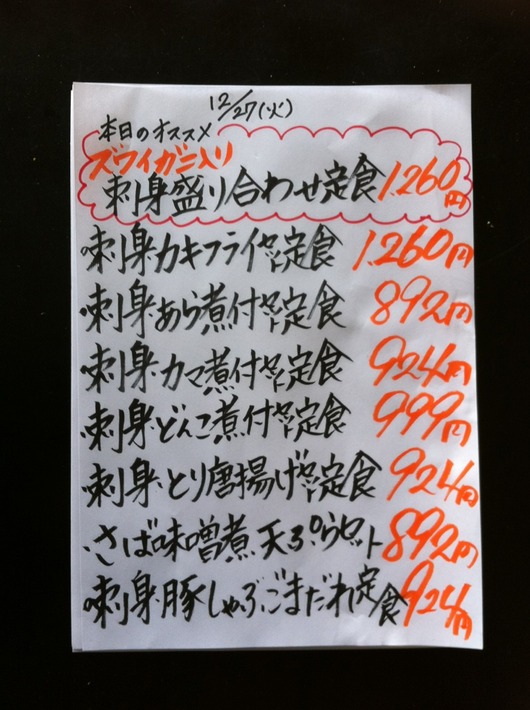 12/27(火)
本日のオススメ
ズワイガニ入り
刺身盛り合わせ定食 1.260円
刺身カキフライセット定食 1.260円
刺身あら煮付セット定食 892円
刺身カマ煮付セット定食 924円
刺身どんこ煮付セット定食 999円
刺身とり唐揚げセット定食 924円
さば味噌煮天ぷらセット 892円
刺身豚しゃぶごまだれ定食 924円